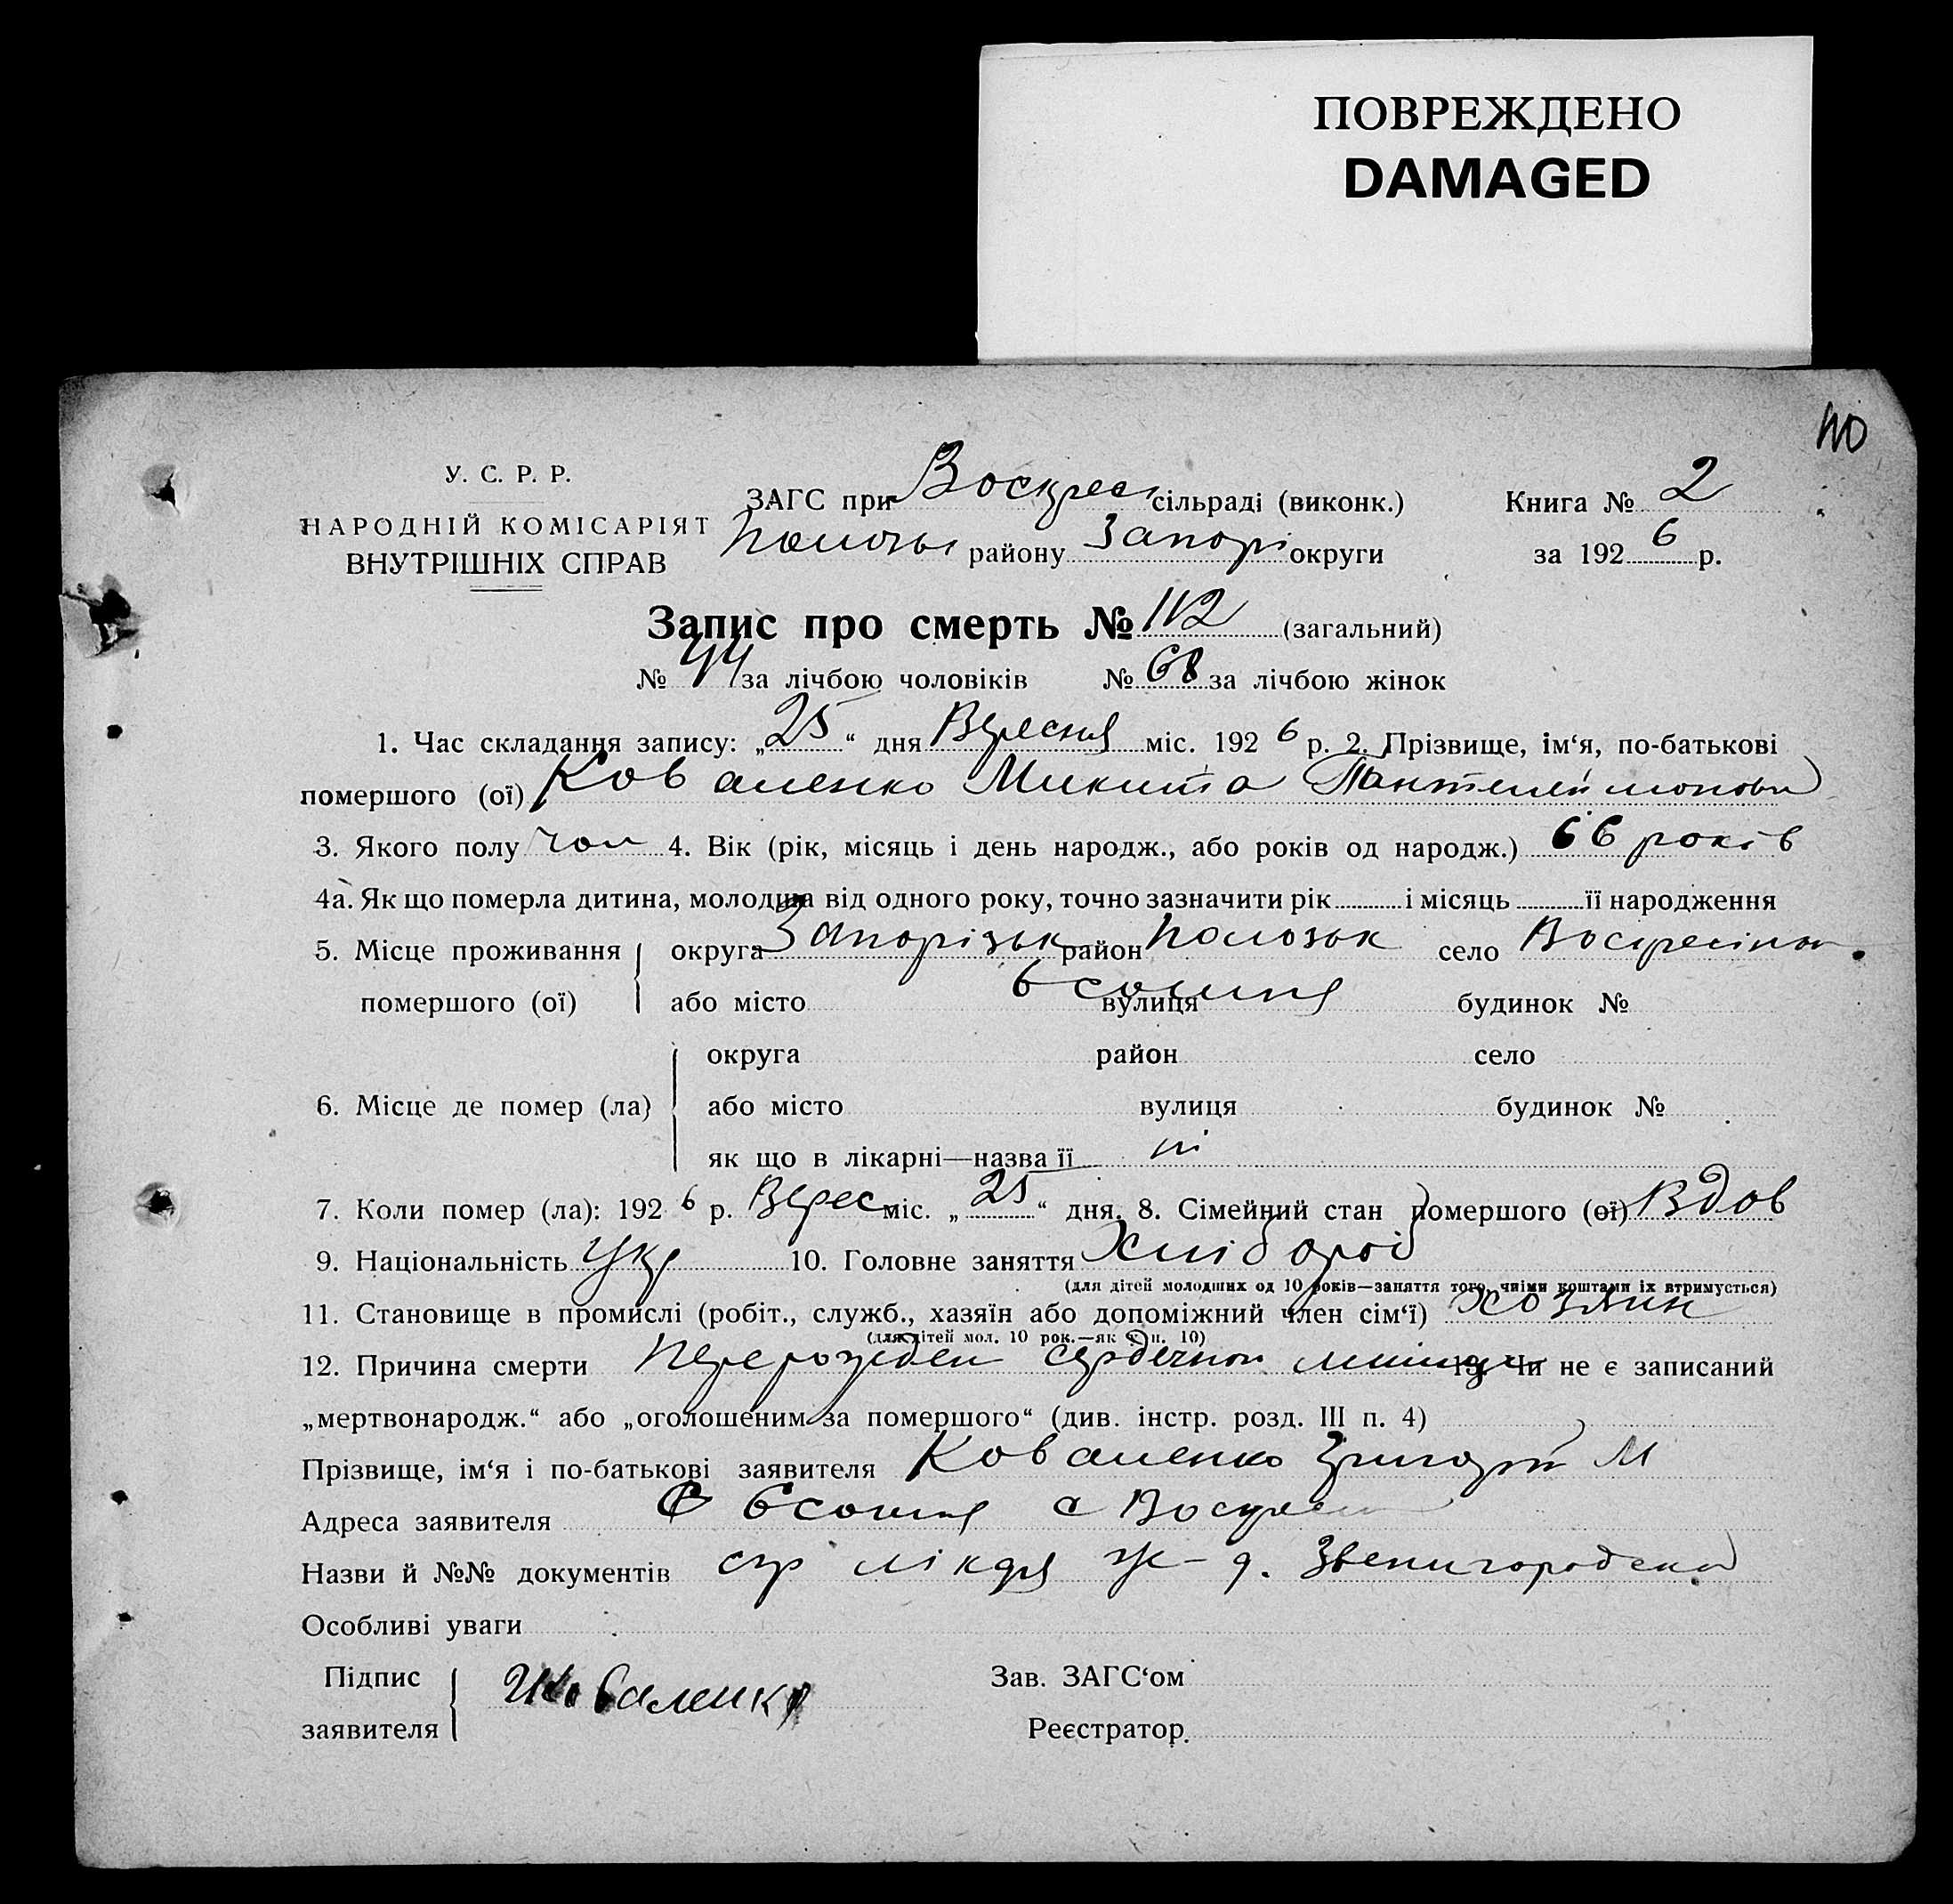 ПОВРЕЖДЕНО
DAMAGED
40
У. С. Р. Р.
НАРОДНІЙ КОМІСАРІЯТ
ВНУТРІШНІХ СПРАВ
ЗАГС при Воскрес сільраді (виконк.) Книга № 2
району Запорі округи за 1926 р.
Запис про смерть № 112 (загальний)
№ 44 за лічбою чоловіків № 68 за лічбою жінок
1. Час складання запису: „25“ дня Вересня міс. 1926 р. 2. Прізвище, ім‘я, по-батькові
помершого (ої) Коваленко Микита Пантелеймонови
3. Якого полу чол 4. Вік (рік, місяць і день народж., або років од народж.) 66 років
4а. Як що померла дитина, молодша від одного року, точно зазначити рік і місяць її народження
5. Місце проживання помершого (ої) округа Запорізьк район Полозьк село Воскресінка
або місто 6 сотня вулиця будинок №
6. Місце де помер (ла) округа район село
або місто вулиця будинок №
як що в лікарні—назва її ні
7. Коли помер (ла): 1926 р. Верес міс. „25“ дня. 8. Сімейний стан помершого (ої) Вдов
9. Національність Укр 10. Головне заняття Хлібороб
(для дітей молодших од 10 років—заняття того, чиїми коштами їх втримується)
11. Становище в промислі (робіт., служб., хазяїн або допоміжний член сім‘ї) хозяин
(для дітей мол. 10 рок.—як в п. 10)
12. Причина смерти Перерожден сердечной мишци 13. Чи не є записаний
„мертвонародж.“ або „оголошеним за помершого“ (див. інстр. розд. III п. 4)
Прізвище, ім‘я і по-батькові заявителя Коваленко Григорій М
Адреса заявителя 6 сотня с Воскрес
Назви й №№ документів лікаря ж-д. Звенигородска
Особливі уваги
Підпис заявителя Коваленко
Зав. ЗАГС‘ом
Реєстратор